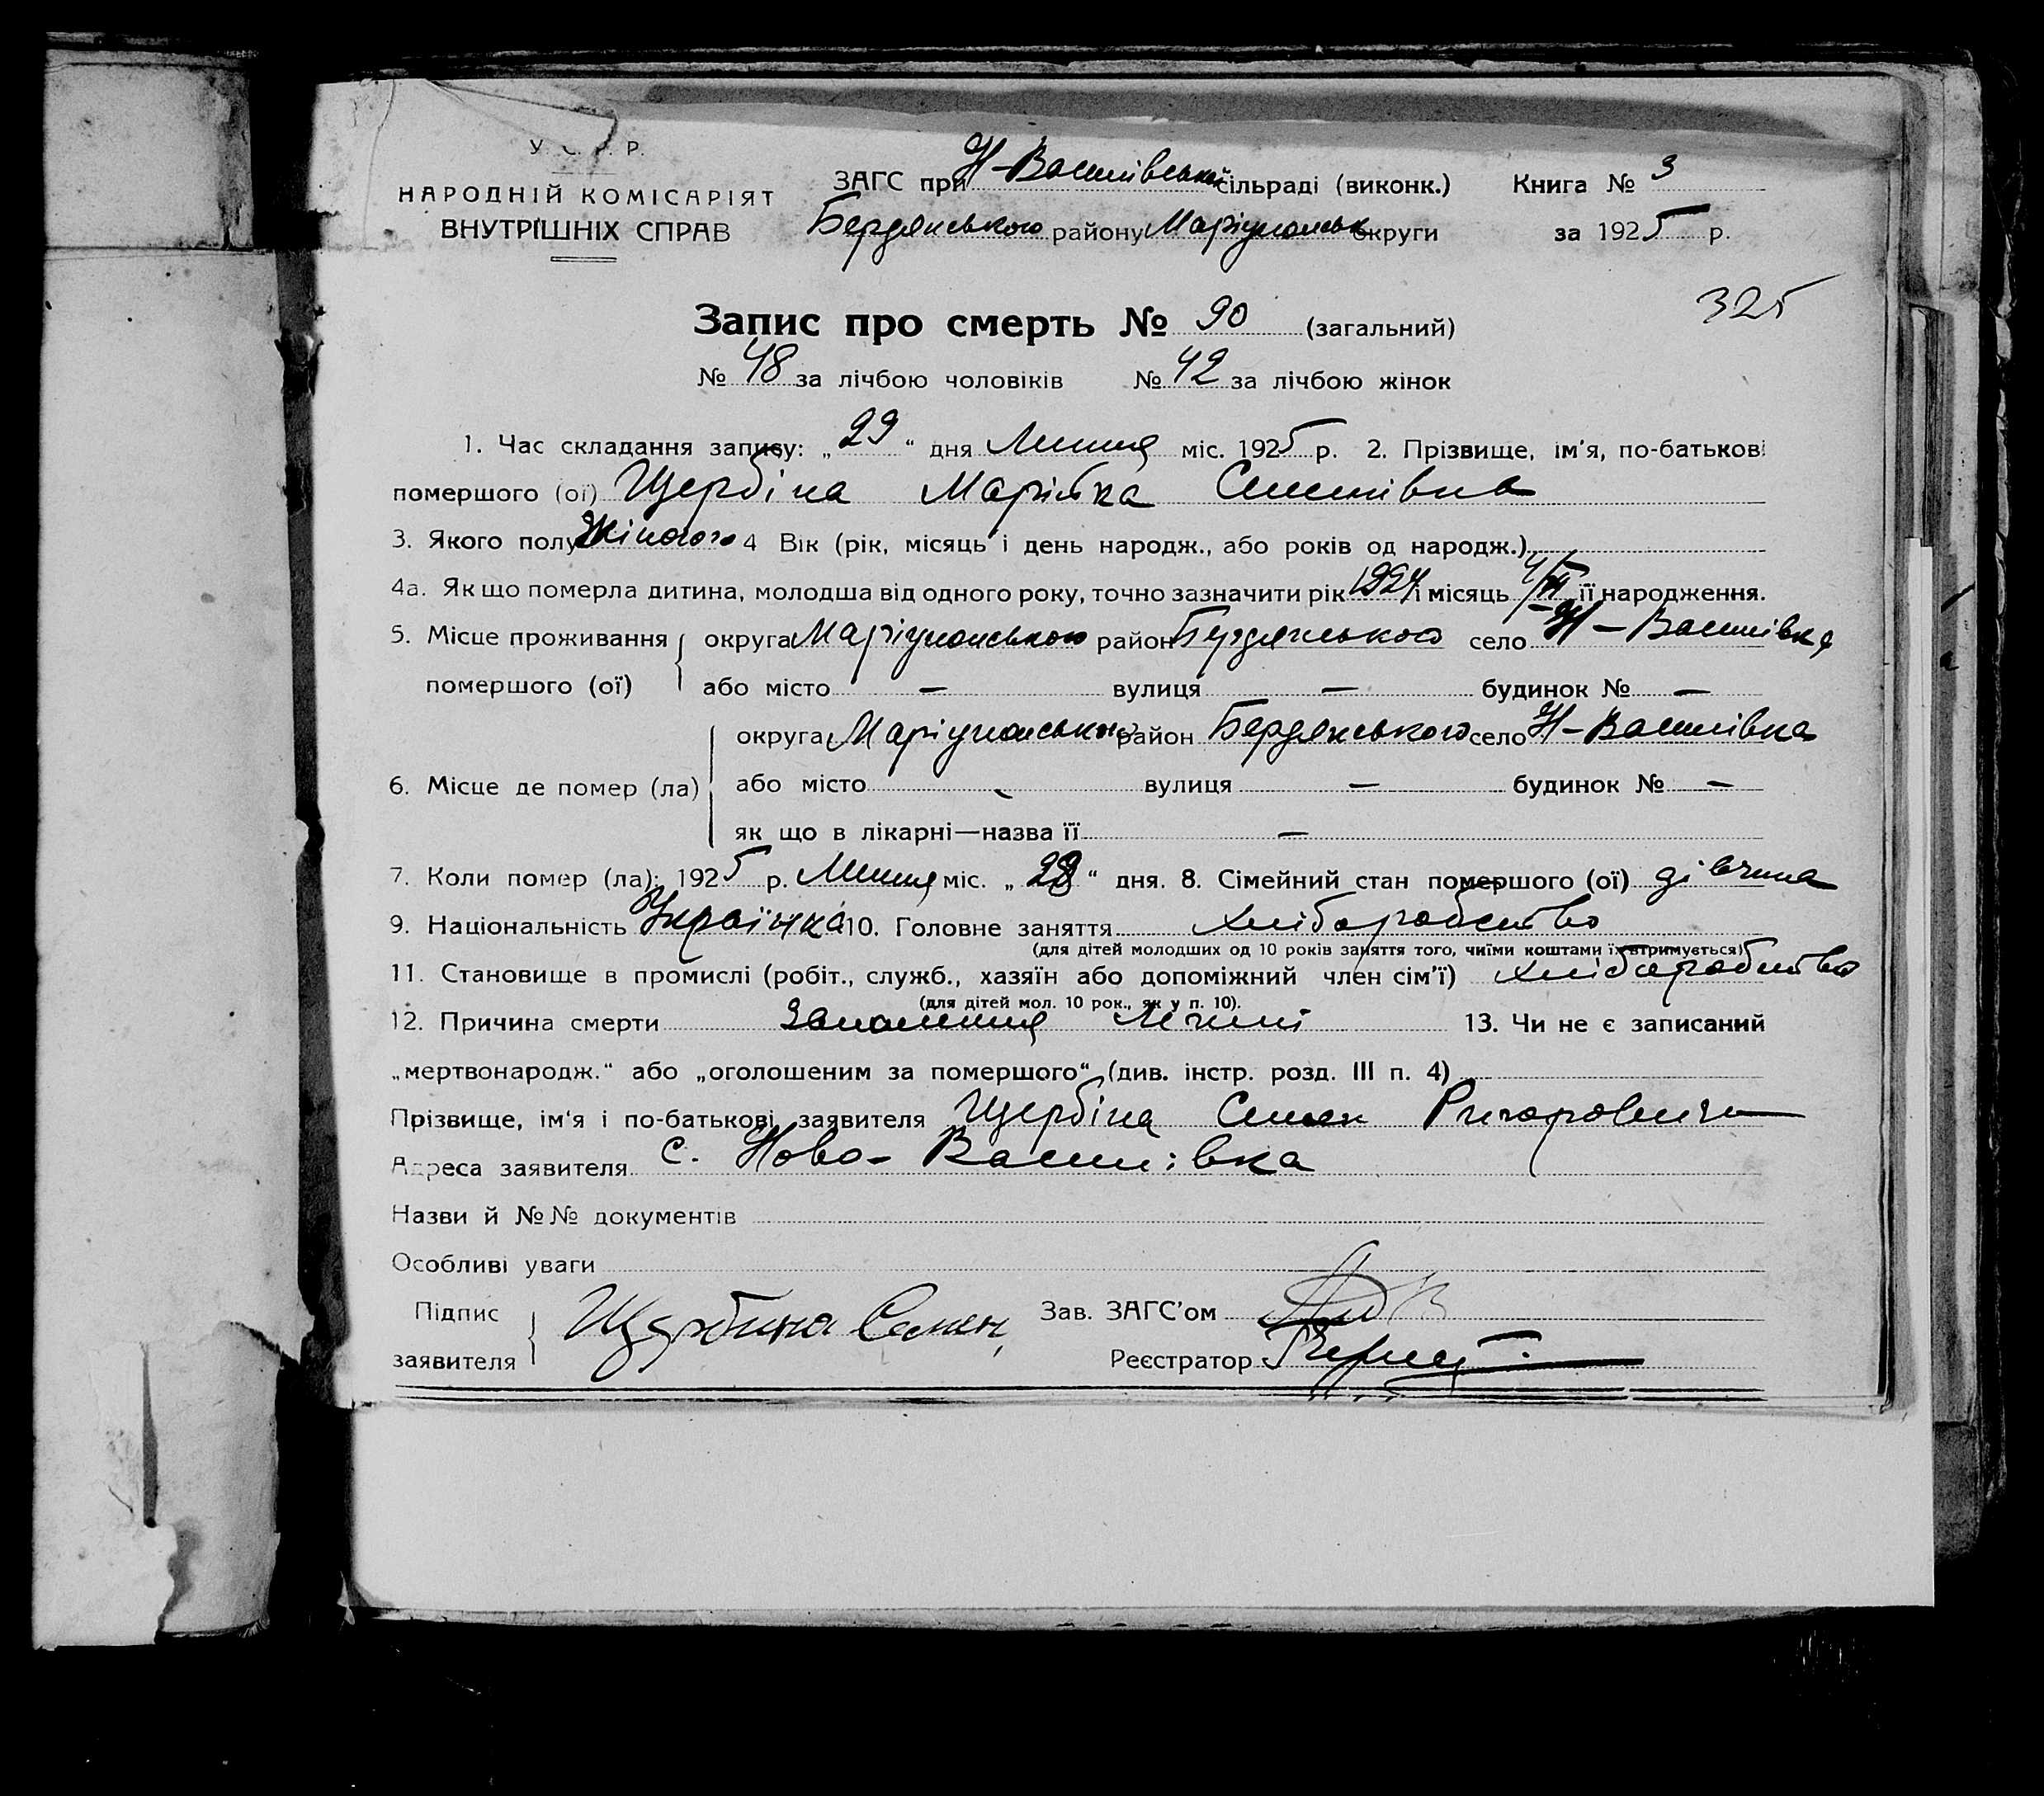 У. С. Р. Р.
НАРОДНІЙ КОМІСАРІЯТ
ВНУТРІШНІХ СПРАВ
ЗАГС при Н-Василівській сільраді (виконк.)
Бердянського району Маріупольськ округи
Книга № 3
за 1925 р.
325
Запис про смерть № 90 (загальний)
№ 48 за лічбою чоловіків № 42 за лічбою жінок
1. Час складання запису: „29“ дня Липня міс. 1925 р. 2. Прізвище, ім'я, по-батькові
помершого (ої) Щербіна Марійка Семенівна
3. Якого полу Жіночого 4 Вік (рік, місяць і день народж., або років од народж.)
4а. Як що померла дитина, молодша від одного року, точно зазначити рік 1924 і місяць її народження.
5. Місце проживання округа Маріупольського район Бердянського село Н-Василівка
помершого (ої) або місто — вулиця — будинок № —
округа Маріупольського район Бердянського село Н-Василівка
6. Місце де помер (ла) або місто - вулиця — будинок № —
як що в лікарні—назва її —
7. Коли помер (ла): 1925 р. Липня міс. „28“ дня. 8. Сімейний стан помершого (ої) дівчина
9. Національність Українка 10. Головне заняття хліборобство
(для дітей молодших од 10 років заняття того, чиїми коштами їх втримується)
11. Становище в промислі (робіт., служб., хазяїн або допоміжний член сім'ї) хліборобство
(для дітей мол. 10 рок., як у п. 10).
12. Причина смерти Запалення 13. Чи не є записаний
„мертвонародж.“ або „оголошеним за помершого“ (див. інстр. розд. III п. 4)
Прізвище, ім'я і по-батькові заявителя Щербіна Семен Григорович
Адреса заявителя с. Ново-Василівка
Назви й №№ документів
Особливі уваги
Підпис
заявителя Щербина Семен
Зав. ЗАГС'ом
Реєстратор